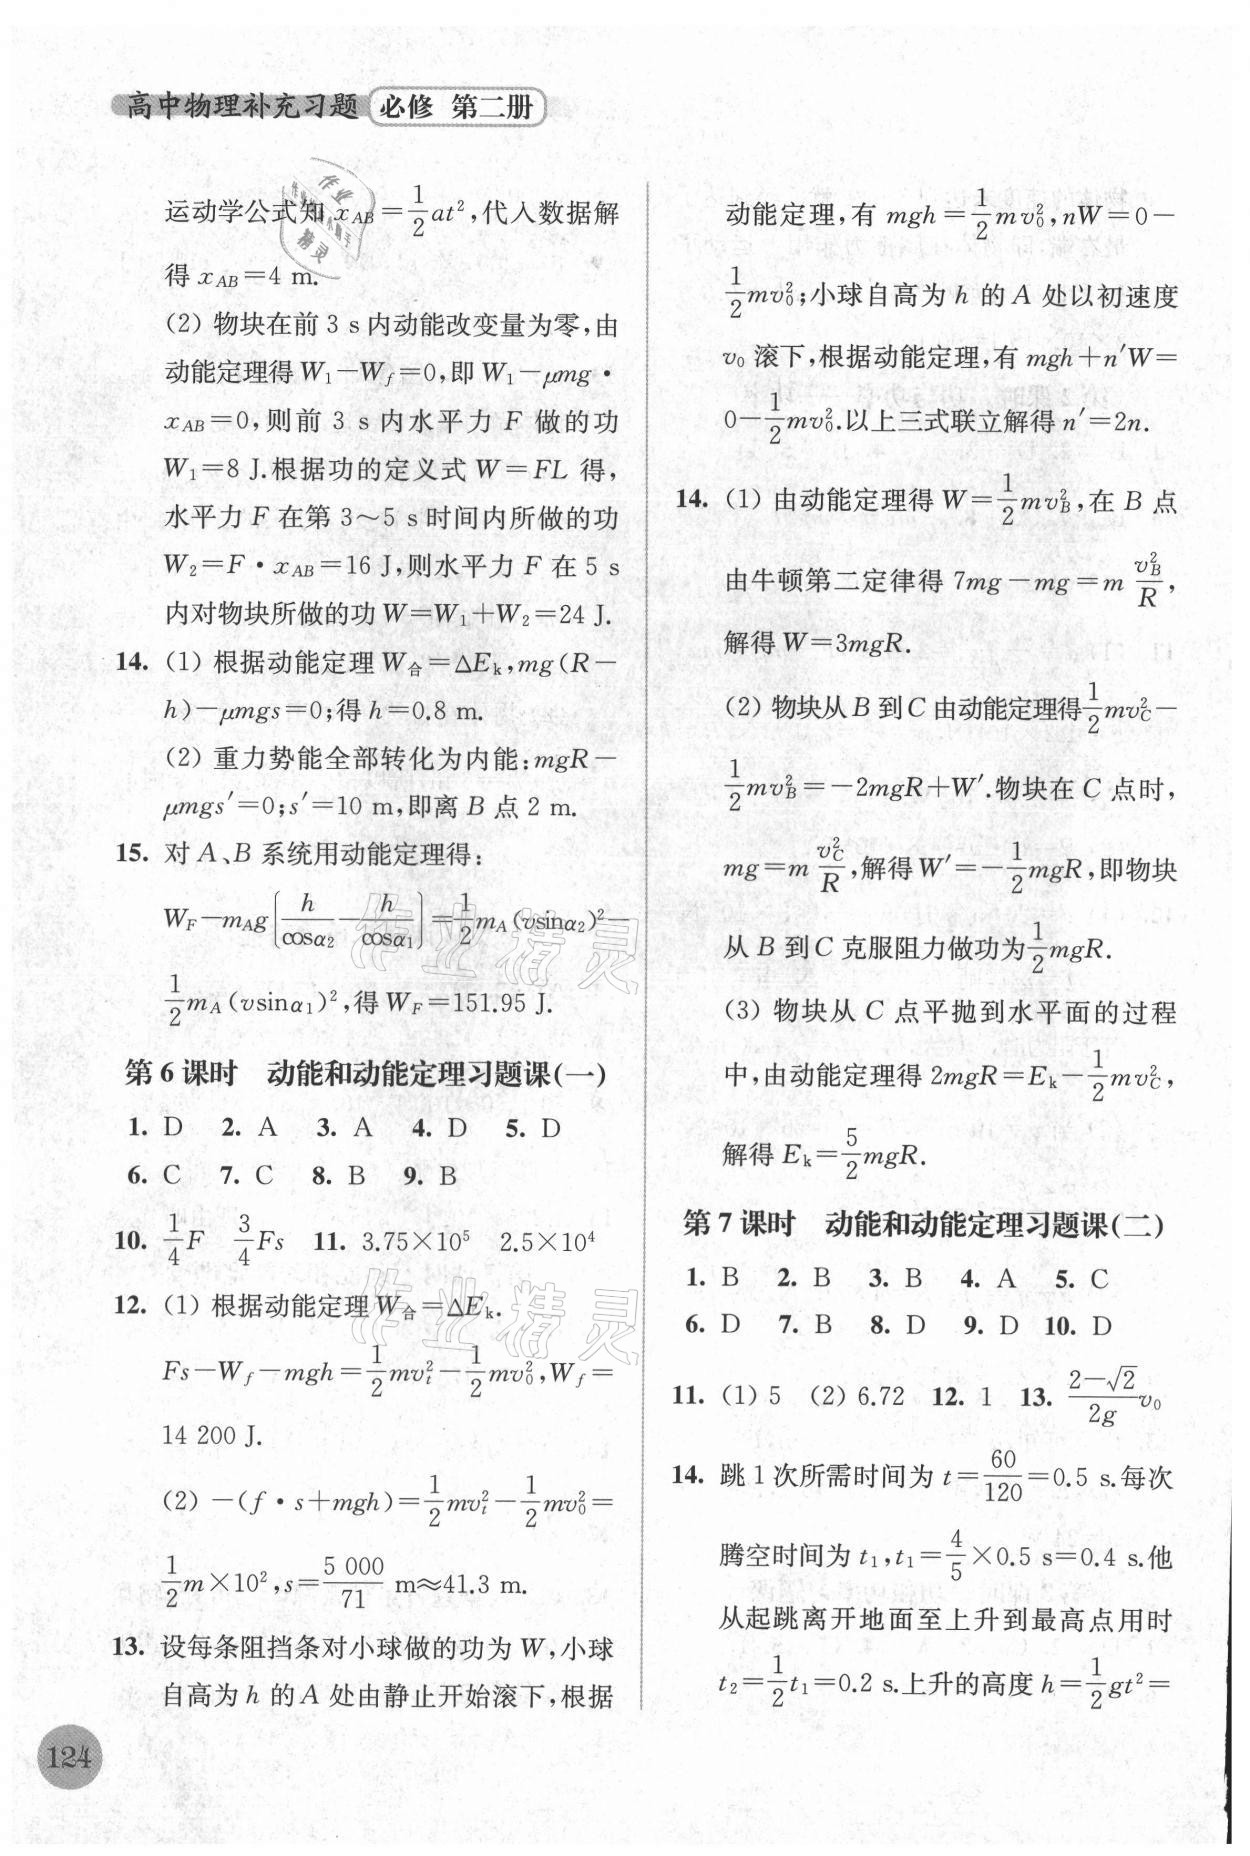 高中物理补充习题 必修 第二册
运动学公式知 x_{AB}=\frac{1}{2}at²,代入数据解
得 x_{AB}=4 m.
(2) 物块在前 3 s 内动能改变量为零,由
动能定理得 W₁-W_f=0,即 W₁-μmg·
x_{AB}=0,则前 3 s 内水平力 F 做的功
W₁=8 J.根据功的定义式 W=FL 得,
水平力 F 在第 3~5 s 时间内所做的功
W₂=F·x_{AB}=16 J,则水平力 F 在 5 s
内对物块所做的功 W=W₁+W₂=24 J.
14. (1) 根据动能定理 W_合=△E_k,mg(R-
h)-μmgs=0;得 h=0.8 m.
(2) 重力势能全部转化为内能:mgR-
μmgs′=0;s′=10 m,即离 B 点 2 m.
15. 对 A、B 系统用动能定理得:
W_F-m_A g(\frac{h}{cosα₂}-\frac{h}{cosα₁})=\frac{1}{2}m_A(vsinα₂)²-
\frac{1}{2}m_A(vsinα₁)²,得 W_F=151.95 J.
第 6 课时 动能和动能定理习题课(一)
1. D 2. A 3. A 4. D 5. D
6. C 7. C 8. B 9. B
10. \frac{1}{4}F \frac{3}{4}Fs 11. 3.75×10⁵ 2.5×10⁴
12. (1) 根据动能定理 W_合=△E_k.
Fs-W_f-mgh=\frac{1}{2}mv_t²-\frac{1}{2}mv₀²,W_f=
14 200 J.
(2) -(f·s+mgh)=\frac{1}{2}mv_t²-\frac{1}{2}mv₀²=
\frac{1}{2}m×10²,s=\frac{5 000}{71} m≈41.3 m.
13. 设每条阻挡条对小球做的功为 W,小球
自高为 h 的 A 处由静止开始滚下,根据
124
动能定理,有 mgh=\frac{1}{2}mv₀²,nW=0-
\frac{1}{2}mv₀²;小球自高为 h 的 A 处以初速度
v₀ 滚下,根据动能定理,有 mgh+n′W=
0-\frac{1}{2}mv₀².以上三式联立解得 n′=2n.
14. (1) 由动能定理得 W=\frac{1}{2}mv_B²,在 B 点
由牛顿第二定律得 7mg-mg=m\frac{v_B²}{R},
解得 W=3mgR.
(2) 物块从 B 到 C 由动能定理得\frac{1}{2}mv_C²-
\frac{1}{2}mv_B²=-2mgR+W′.物块在 C 点时,
mg=m\frac{v_C²}{R},解得 W′=-\frac{1}{2}mgR,即物块
从 B 到 C 克服阻力做功为\frac{1}{2}mgR.
(3) 物块从 C 点平抛到水平面的过程
中,由动能定理得 2mgR=E_k-\frac{1}{2}mv_C²,
解得 E_k=\frac{5}{2}mgR.
第 7 课时 动能和动能定理习题课(二)
1. B 2. B 3. B 4. A 5. C
6. D 7. B 8. D 9. D 10. D
11. (1) 5 (2) 6.72 12. 1 13. \frac{2-√2}{2g}v₀
14. 跳 1 次所需时间为 t=\frac{60}{120}=0.5 s.每次
腾空时间为 t₁,t₁=\frac{4}{5}×0.5 s=0.4 s.他
从起跳离开地面至上升到最高点用时
t₂=\frac{1}{2}t₁=0.2 s.上升的高度 h=\frac{1}{2}gt²=
作业精灵
作业精灵